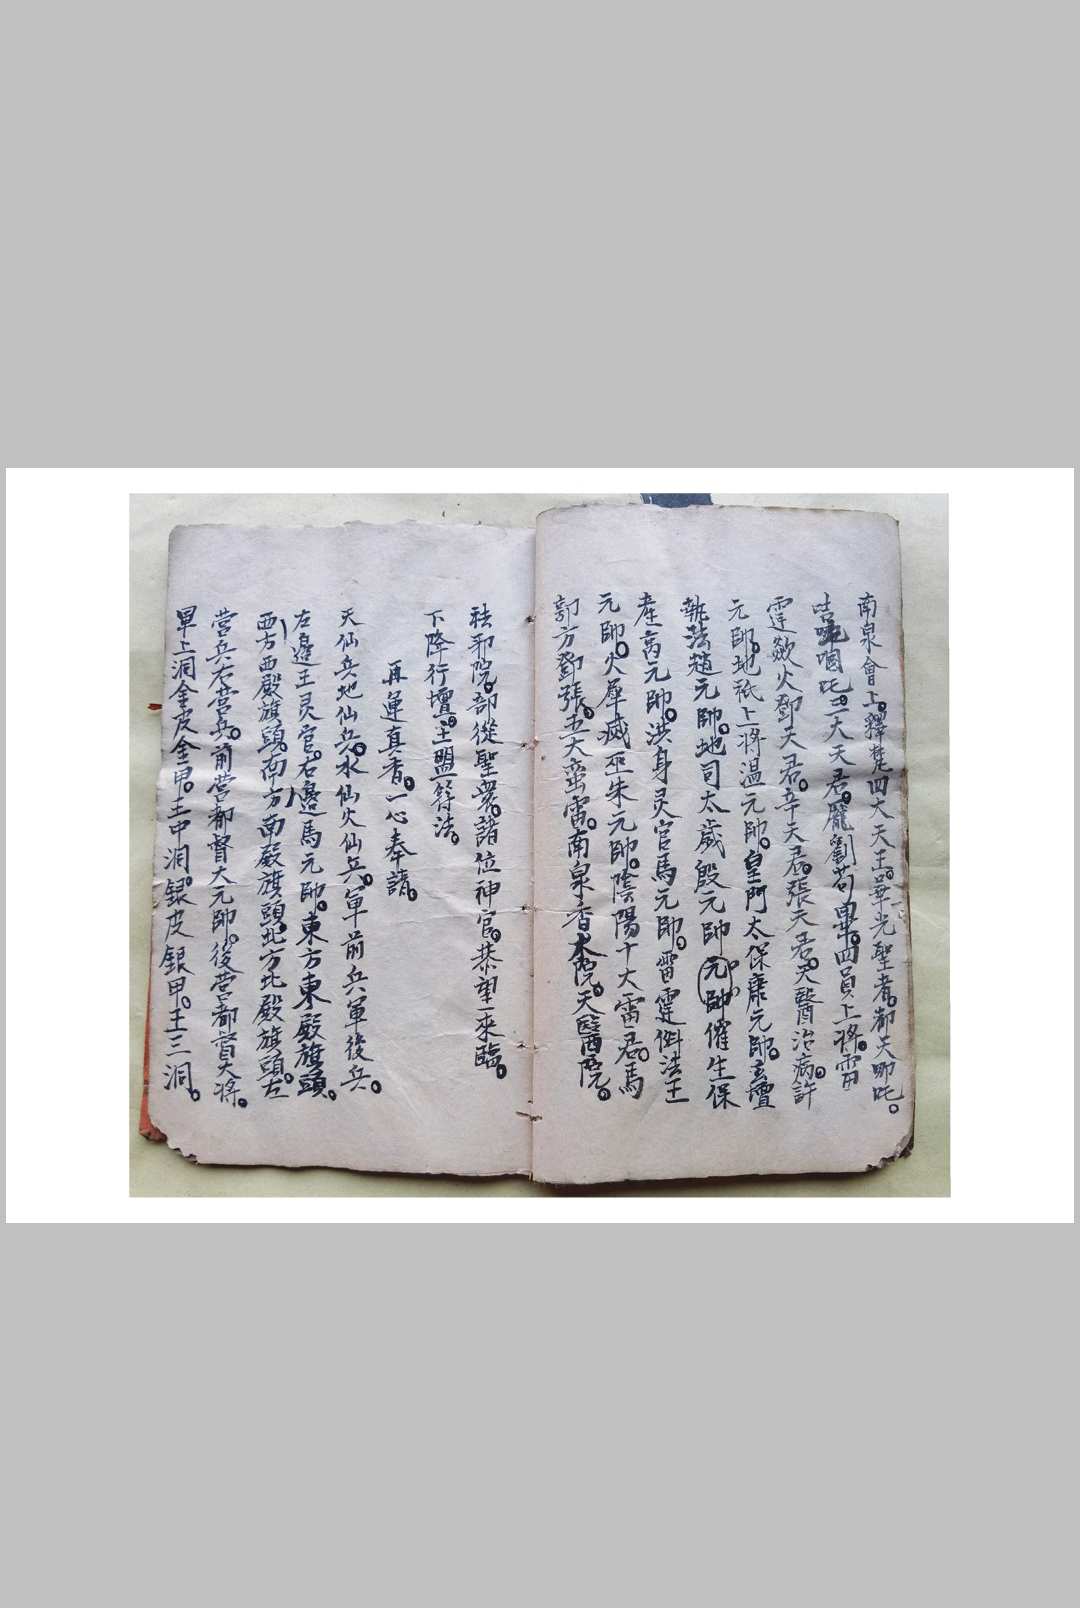 南泉會上。釋梵四大天王。華光聖者。都天哪吒。
呫唲啯吒三大天君。龐劉苟畢。四員上將。雷
霆歘火鄧天君。辛天君。張天君。天醫治病許
元帥。地祇上將温元帥。皇門太保康元帥。玄壇
執法趙元帥。地司太歲殷元帥元帥催生保
產高元帥。洪身灵官馬元帥。雷霆糾法王
元帥。火犀滅巫朱元帥。陰陽十大雷君。馬
郭方鄧張。五大蛮雷。南泉香。本院。天醫院。
祛邪院。部從聖眾。諸位神官。恭望來臨。
下降行壇。主盟符法。
再運真香。一心奉請。
天仙兵地仙兵。水仙火仙兵。軍前兵軍後兵。
左邊王灵官。右邊馬元帥。東方東殿旗頭。
西方西殿旗頭。南方南殿旗頭。北方北殿旗頭。左
营兵右营兵。前营都督大元帥。後营都督大將。
單上洞金皮金甲。王中洞。銀皮銀甲。王三洞。